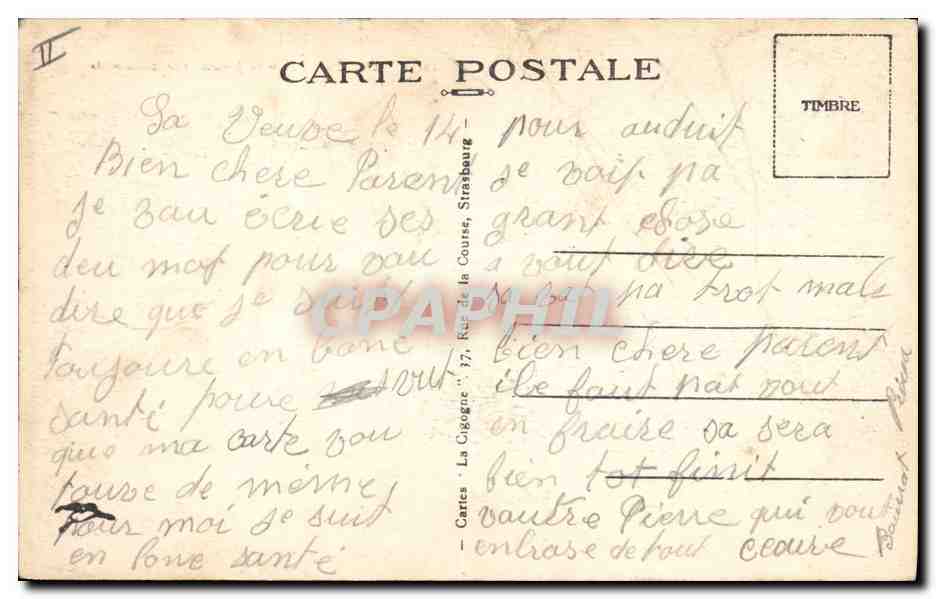 II
CARTE POSTALE
TIMBRE
La Veuve le 14
Bien chere Parent
Je vau écrie ses
deu mot pour vau
dire que Je suit
toujoure en bone
santé poure
que ma carte vou
touve de mémne
Pour moi Je suit
en bone santé
- Cartes "La Cigogne" 37, Rue de la Course, Strasbourg -
pour auduit
Je voip pa
grant chose
a vout dire
sa va pa trot male
bien chere parent
il e faut pat vout
en fraire sa sera
bien tot finit
vautre Pierre qui vout
enbrase de tout ceoure
CPAPHIL